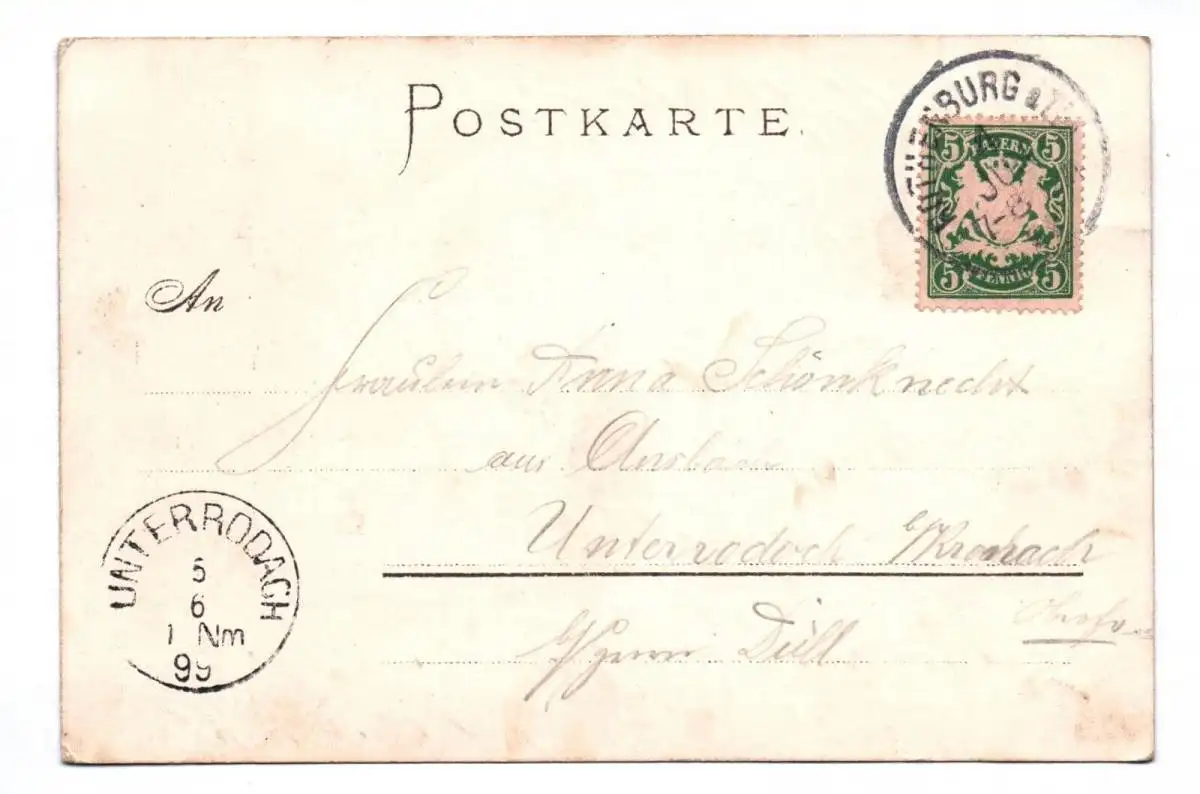 POSTKARTE.
ROTHENBURG a/T
4
JU
7-8
5 BAYERN 5
5 PFENNIG 5
An
Fräulein Anna Schönknecht
aus Ansbach
Unterrodach b/Kronach
b/Herrn Düll
UNTERRODACH
5
6
1 Nm
99